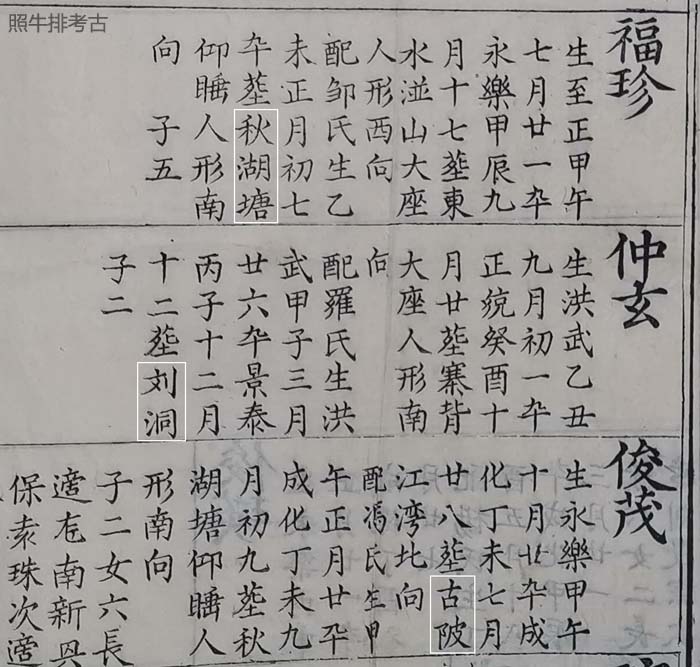 照牛排考古
福珍
生至正甲午
七月廿一卒
永樂甲辰九
月十七塟東
水湴山大座
人形西向
配邹氏生乙
未正月初七
卒塟秋湖塘
仰睡人形南
向 子五
仲玄
生洪武乙丑
九月初一卒
正统癸酉十
月廿塟寨背
大座人形南
向
配羅氏生洪
武甲子三月
廿六卒景泰
丙子十二月
十二塟刘洞
子二
俊茂
生永樂甲午
十月廿卒成
化丁未七月
廿八塟古陂
江湾北向
配馮氏生甲
午正月廿卒
成化丁未九
月初九塟秋
湖塘仰睡人
形南向
子二女六長
適龙南新兴
保袁珠次適